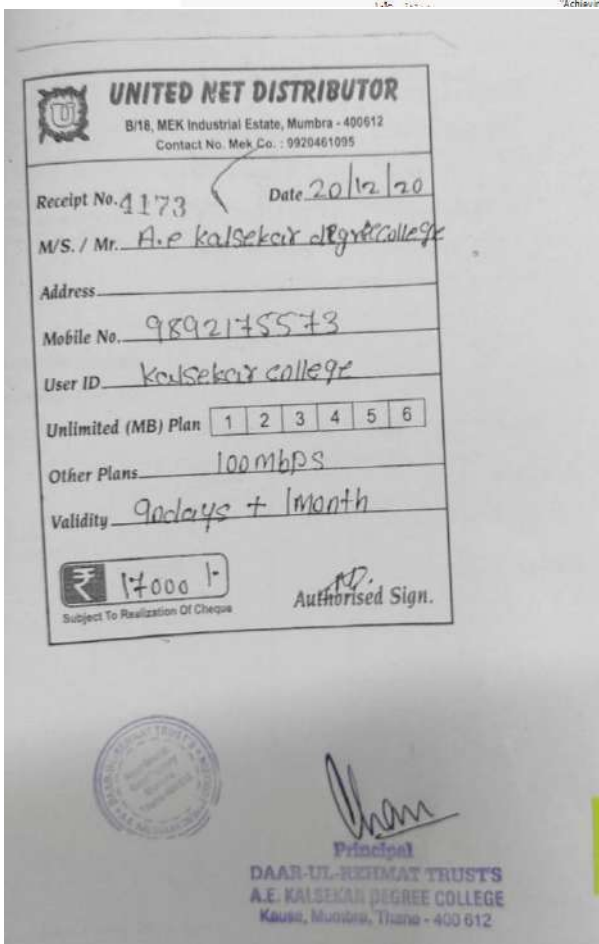 "Achievin
UNITED NET DISTRIBUTOR
B/18, MEK Industrial Estate, Mumbra - 400612
Contact No. Mek Co. : 9920461095
Receipt No. 4173 Date 20/12/20
M/S. / Mr. A.e Kalsekar degree college
Address
Mobile No. 9892175573
User ID Kalsekar college
Unlimited (MB) Plan 1 2 3 4 5 6
Other Plans 100 mbps
Validity 90days + 1month
₹ 17000 /-
Subject To Realization Of Cheque
Authorised Sign.
Principal
DAAR-UL-REHMAT TRUST'S
A.E. KALSEKAR DEGREE COLLEGE
Kausa, Mumbra, Thane - 400 612